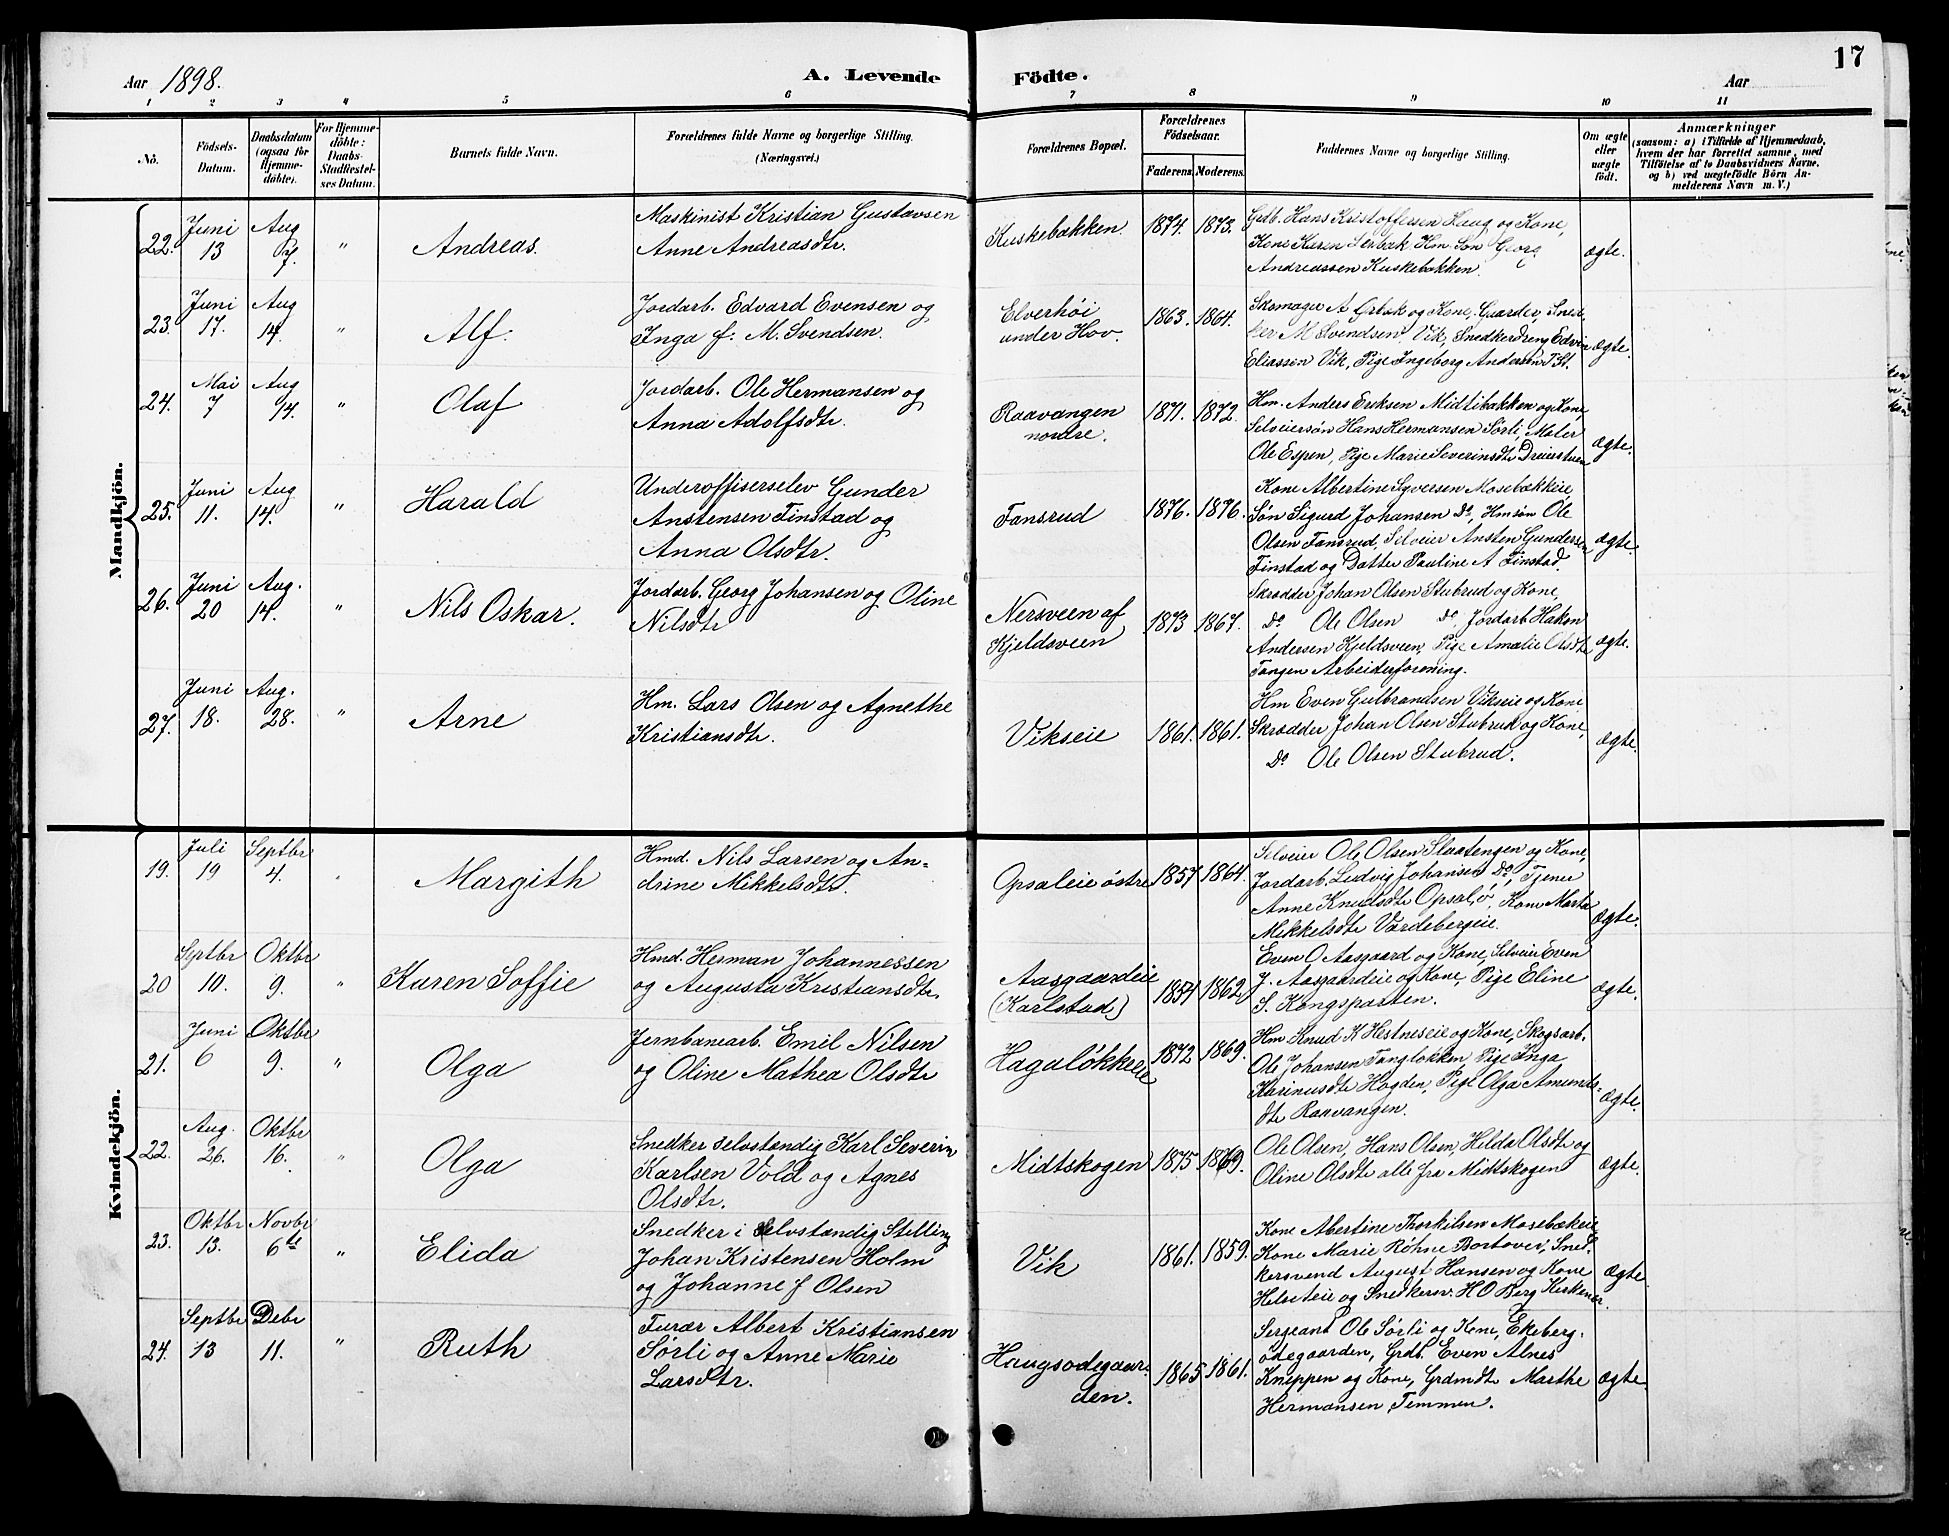 Aar 1898.
A. Levende Födte.
Aar
17
1 2 3 4 5 6 7 8 9 10 11
No.
Födsels-
Datum.
Daabsdatum
(ogsaa for
Hjemme-
döbte).
For Hjemme-
döbte:
Daabs-
Stadfæstel-
ses Datum.
Barnets fulde Navn.
Forældrenes fulde Navne og borgerlige Stilling.
(Næringsvei.)
Forældrenes Bopæl.
Forældrenes
Födselsaar.
Faderens. Moderens.
Faddernes Navne og borgerlige Stilling.
Om ægte
eller
uægte
födt.
Anmærkninger
(saasom: a) i Tilfælde af Hjemmedaab,
hvem der har forrettet samme, med
Tilföielse af to Daabsvidners Navne.
og b) ved uægtefödte Börn An-
melderens Navn m. V.)
Mandkjön.
22. Juni 13 Aug 7. " Andreas.
Maskinist Kristian Gustavsen
Anne Andreasdtr.
Kuskebakken. 1874. 1873.
Grdb. Hans Kristoffersen Haug og Kone,
Kone Karen Serbak Hm. Søn Georg
Andreassen Kuskebakken.
ægte.
23. Juni 17. Aug 14. " Alf.
Jordarb. Edvard Evensen og
Inga f. M. Svendsen.
Elverhöi
under Hov.
1863. 1864.
Skomager A Ørbak og Kone, Gaarder, Sned-
ker M Svendsen, Vik, Snedkerdreng Edvin
Eliassen Vik, Pige Ingeborg Andersen T St.
ægte.
24. Mai 7 Aug 14. " Olaf
Jordarb. Ole Hermansen og
Anna Adolfsdtr.
Raavangen
nordre.
1871. 1872.
Hm. Anders Eriksen Midtibakken og Kone,
Selveiersøn Hans Hermansen Sörli, Maler
Ole Espen, Pige Marie Severinsdtr Dreierstuen
ægte.
25. Juni 11. Aug 14. " Harald
Underoffiserselev Gunder
Anstensen Finstad og
Anna Olsdtr.
Fansrud 1876. 1876.
Kone Albertine Syversen Mosebækkeie,
Søn Sigurd Johansen Do, Hmsøn Ole
Olsen Fansrud, Selveier Ansten Gundersen
Finstad og Datter Pauline A Finstad.
ægte.
26. Juni 20 Aug. 14. " Nils Oskar.
Jordarb. Georg Johansen og Oline
Nilsdtr
Nersveen af
Kjeldsveen
1873 1867.
Skrædder Johan Olsen Stubrud og Kone,
Do Ole Olsen Do, Jordarb Hakon
Andersen Kjeldsveen, Pige Amalie Olsdtr
Tangen Arbeiderforening.
ægte.
27. Juni 18. Aug. 28. " Arne
Hm. Lars Olsen og Agnethe
Kristiansdtr.
Vikseie 1861. 1861.
Hm Even Gulbrandsen Vikseie og Kone
Skrædder Johan Olsen Stubrud og Kone,
Do Ole Olsen Stubrud.
ægte.
Kvindekjön.
19. Juli 19 Septbr 4. " Margith
Hmd. Nils Larsen og An-
drine Mikkelsdtr.
Opsaleie östre 1857 1864.
Selveier Ole Olsen Slaatengen og Kone,
Jordarb. Ludvig Johansen Do, Tjener
Anne Knudsdtr Opsal, ö, Kone Marta
Mikkelsdtr Vardebergeie.
ægte.
20 Septbr 10. Oktbr 9. " Karen Soffie
Hmd. Herman Johannessen
og Augusta Kristiansdtr.
Aasgaardeie
(Karlstad)
1857 1862
Even O Aasgaard og Kone, Selveier Even
J. Aasgaardeie og Kone, Pige Eline
S. Kongsparten.
ægte.
21. Juni 6 Oktbr 9. " Olga
Jernbanearb. Emil Nilsen
og Oline Mathea Olsdtr
Hagalökkeie 1872 1869.
Hm Knud K Hestneseie og Kone, Skogsarb.
Ole Johansen Tanglökken Pige Inga
Karinusdtr Hogden, Pige Olga Amunds-
dtr Raavangen.
ægte.
22. Aug. 26. Oktbr 16. " Olga
Snedker selvstændig Karl Severin
Karlsen Vold og Agnes
Olsdtr.
Midtskogen 1875 1869.
Ole Olsen, Hans Olsen, Helda Olsdtr og
Oline Olsdtr alle fra Midtskogen
ægte.
23. Oktbr 13. Novbr 6te " Elida
Snedker i selvstændig Stilling
Johan Kristensen Holm
og Johanne f Olsen
Vik 1861. 1859.
Kone Albertine Thorkilsen Mosebækeie
Kone Marie Röhne Bortover, Sned-
kersvend August Hansen og Kone
Helseteie og Snedkersv. H O Berg Kirkener.
ægte.
24. Septbr 13 Debr 11. " Ruth
Furær Albert Kristiansen
Sörli og Anne Marie
Larsdtr.
Haugsodegaar-
den.
1865 1861.
Sergeant Ole Sörli og Kone, Ekeberg-
ödegaarden, Grdb. Even Alnes
Kneppen og Kone, Grdmdtr Marthe
Hermansen Temmen.
ægte.